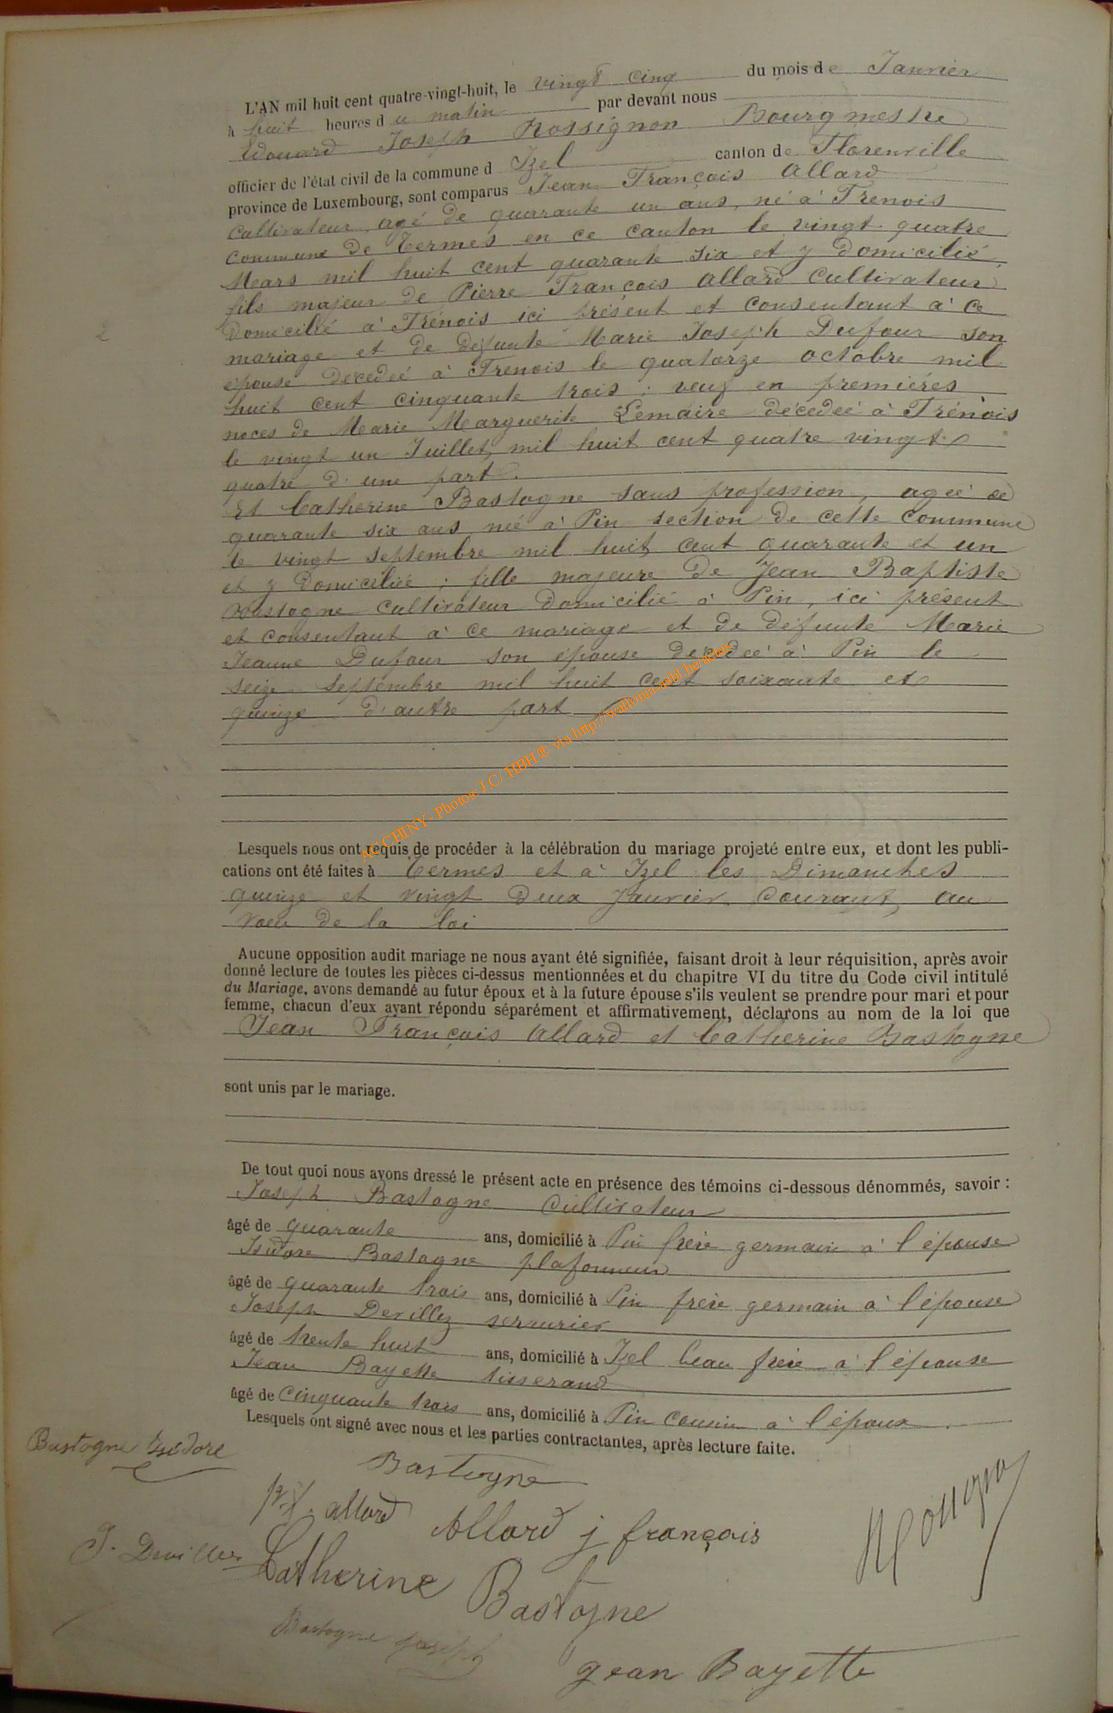 L'AN mil huit cent quatre-vingt-huit, le vingt cinq du mois de Janvier
à huit heures du matin par devant nous
Edouard Joseph Rossignon Bourgmestre
officier de l'état civil de la commune d Izel canton de Florenville
province de Luxembourg, sont comparus Jean François Allard
Cultivateur, agé de quarante un ans, né à Trenois
Commune de Termes en ce canton le vingt quatre
Mars mil huit cent quarante six et y domicilié,
fils majeur de Pierre François Allard Cultivateur
domicilié à Trénois ici présent et consentant à ce
mariage et de défunte Marie Joseph Dufour son
épouse décédeé à Trenois le quatorze octobre mil
huit cent cinquante trois ; veuf en premiéres
noces de Marie Marguerite Lemaire décédeé à Trénois
le vingt un Juillet mil huit cent quatre vingt
quatre d'une part.
Et Catherine Bastogne sans profession, agée de
quarante six ans née à Pin section de cette commune
le vingt septembre mil huit cent quarante et un
et y domiciliée ; fille majeure de Jean Baptiste
Bastogne Cultivateur domicilié à Pin, ici présent
et consentant à ce mariage et de défunte Marie
Jeanne Dufour son épouse décédeé à Pin le
seize septembre mil huit cent soixante et
quinze d'autre part
AC CHINY - Photos J.C. HBH © via http://wallonia.mbl.be
Lesquels nous ont requis de procéder à la célébration du mariage projeté entre eux, et dont les publi-
cations ont été faites à Termes et à Izel les Dimanches
quinze et vingt deux Janvier courant, au
voeu de la loi
Aucune opposition audit mariage ne nous ayant été signifiée, faisant droit à leur réquisition, après avoir
donné lecture de toutes les pièces ci-dessus mentionnées et du chapitre VI du titre du Code civil intitulé
du Mariage, avons demandé au futur époux et à la future épouse s'ils veulent se prendre pour mari et pour
femme, chacun d'eux ayant répondu séparément et affirmativement, déclarons au nom de la loi que
Jean François Allard et Catherine Bastogne
sont unis par le mariage.
De tout quoi nous avons dressé le présent acte en présence des témoins ci-dessous dénommés, savoir :
Joseph Bastogne Cultivateur
âgé de quarante ans, domicilié à Pin frère germain à l'épouse
Isidore Bastogne plafonneur
âgé de quarante trois ans, domicilié à Pin frère germain à l'épouse
Joseph Devillez serrurier
âgé de trente huit ans, domicilié à Izel beau frère à l'épouse
Jean Bayette tisserand
âgé de cinquante trois ans, domicilié à Pin cousin à l'époux
Lesquels ont signé avec nous et les parties contractantes, après lecture faite.
Bastogne Isidore
Bastogne
p. f. allard Allard j françois
J. Devillez Catherine Bastogne
Bastogne joseph
jean Bayette